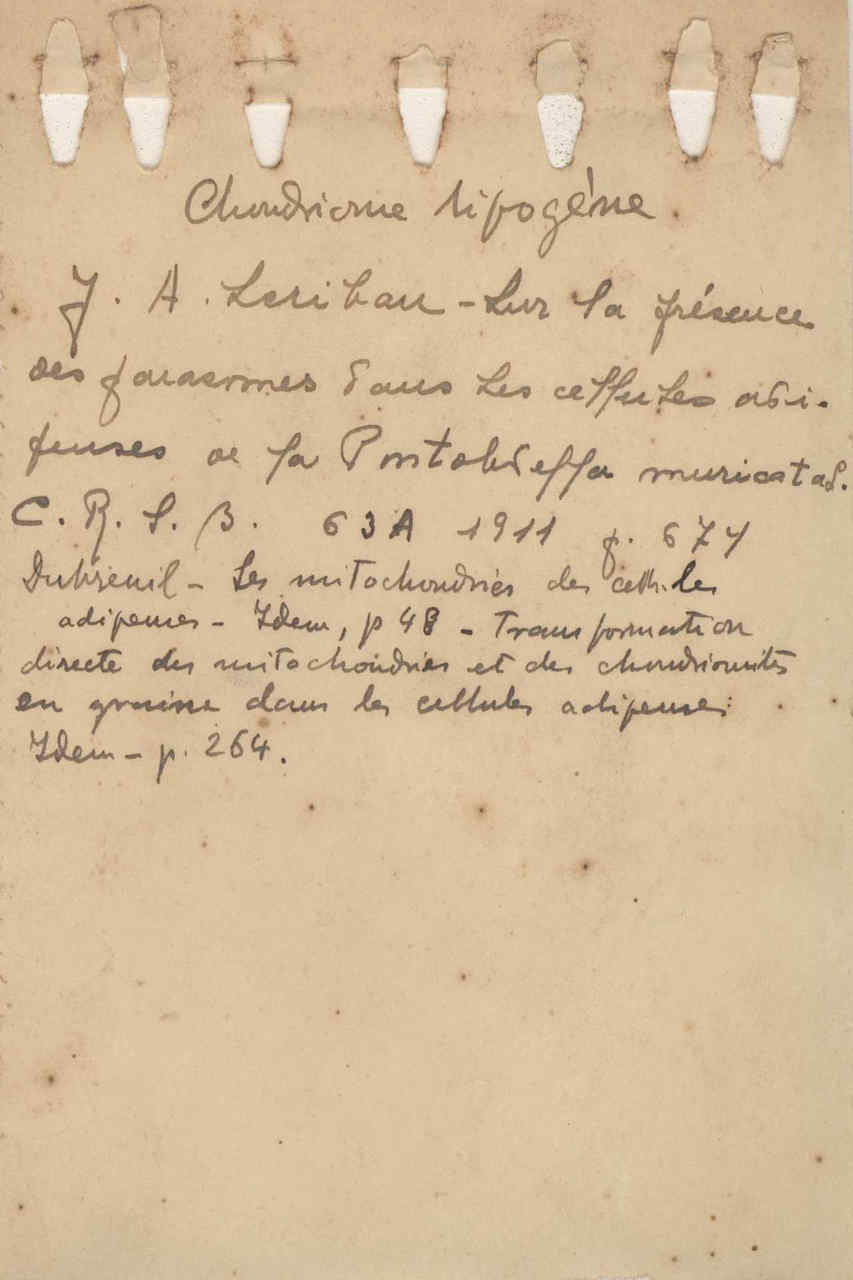 Chondriome lipogène.
J. A. Lesihau - Sur la présence
des parasomes dans les cellules adi-
peuses de la Pontobdella muricata L.
C. R. S. B. 63A 1911 p. 674
Dubreuil - Les mitochondries des cellules
adipeuses - Idem, p 48 - Transformation
directe des mitochondries et des chondriomites
en graisse dans les cellules adipeuses
Idem - p. 264.